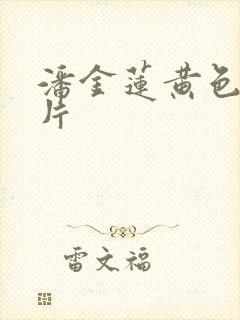 潘金莲黄色
片
雷文福